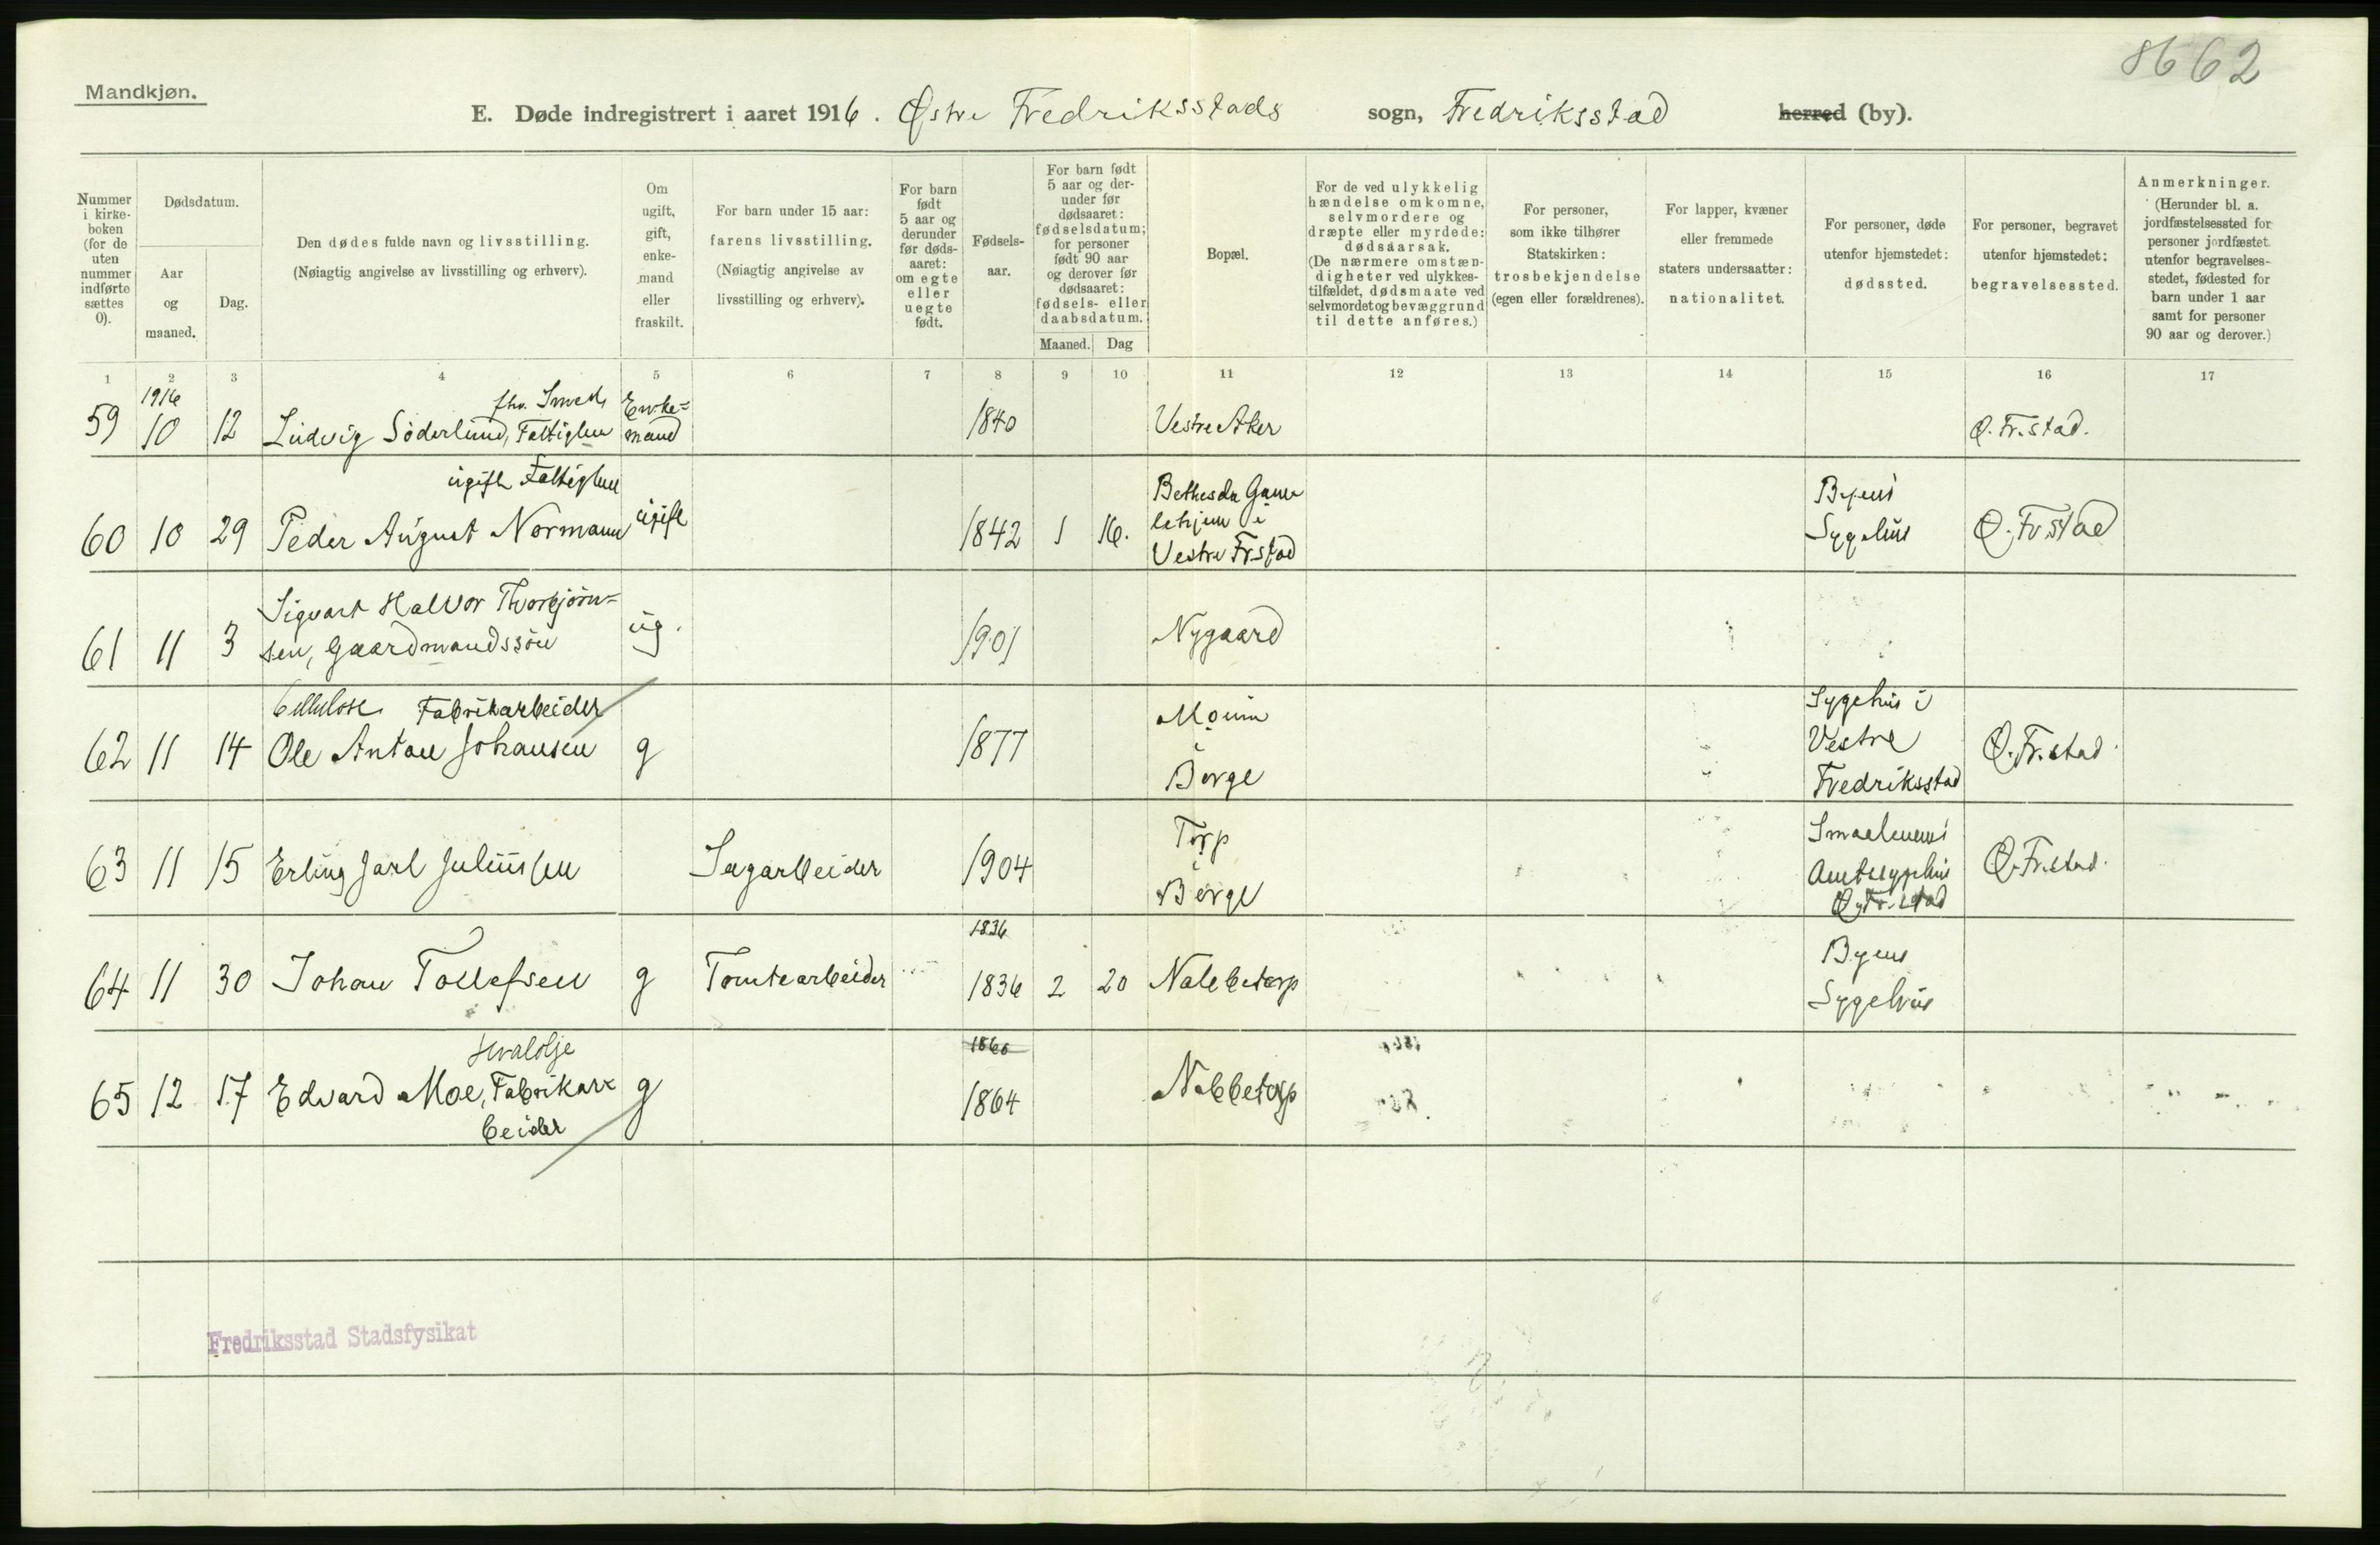 8662
Mandkjøn.
E. Døde indregistrert i aaret 1916. Østre Fredriksstads sogn, Fredriksstad herred (by).
Nummer i kirke-boken (for de uten nummer indførte sættes 0).
Dødsdatum.
Aar og maaned.
Dag.
Den dødes fulde navn og livsstilling.
(Nøiagtig angivelse av livsstilling og erhverv).
Om ugift, gift, enke-mand eller fraskilt.
For barn under 15 aar:
farens livsstilling.
(Nøiagtig angivelse av livsstilling og erhverv).
For barn født 5 aar og derunder før døds-aaret: om egte eller uegte født.
Fødsels-aar.
For barn født 5 aar og der-under før dødsaaret: fødselsdatum; for personer født 90 aar og derover før dødsaaret: fødsels- eller daabsdatum.
Maaned. Dag
Bopæl.
For de ved ulykkelig hændelse omkomne, selvmordere og dræpte eller myrdede: dødsaarsak.
(De nærmere omstæn-digheter ved ulykkes-tilfældet, dødsmaate ved selvmordet og bevæggrund til dette anføres.)
For personer, som ikke tilhører Statskirken: trosbekjendelse (egen eller forældrenes).
For lapper, kvæner eller fremmede staters undersaatter: nationalitet.
For personer, døde utenfor hjemstedet: dødssted.
For personer, begravet utenfor hjemstedet: begravelsessted.
Anmerkninger.
(Herunder bl. a. jordfæstelsessted for personer jordfæstet utenfor begravelses-stedet, fødested for barn under 1 aar samt for personer 90 aar og derover.)
1 2 3 4 5 6 7 8 9 10 11 12 13 14 15 16 17
1916 fhv. Smed, Enke=
59 10 12 Ludvig Söderlund, Fattiglem mand 1840 Vestre Aker Ø. Fr.stad.
ugift Fattiglem Bethesda Gam Byens
60 10 29 Peder August Normann ugift 1842 1 16. lehjem i Sygehus Ø. Fr.stad
Vestre Fr.stad
Sigvart Halvor Thorbjörn=
61 11 3 sen, Gaardmandssön ug. 1901 Nygaard
Cellulose Fabrikarbeider Moum Sygehus i
62 11 14 Ole Anton Johansen g 1877 i Vestre Ø. Fr.stad
Borge Fredriksstad
Torp Smaalenens
63 11 15 Erling Jarl Juliussen Sagarbeider 1904 i Amtssygehus Ø. Fr.stad.
Borge Ø. Fr.stad
1836 Byens
64 11 30 Johan Tollefsen g Tomtearbeider 1836 2 20 Nabbetorp Sygehus
Hvalolje 1860
65 12 17 Edvard Moe, Fabrikar= g 1864 Nabbetorp
beider
Fredriksstad Stadsfysikat